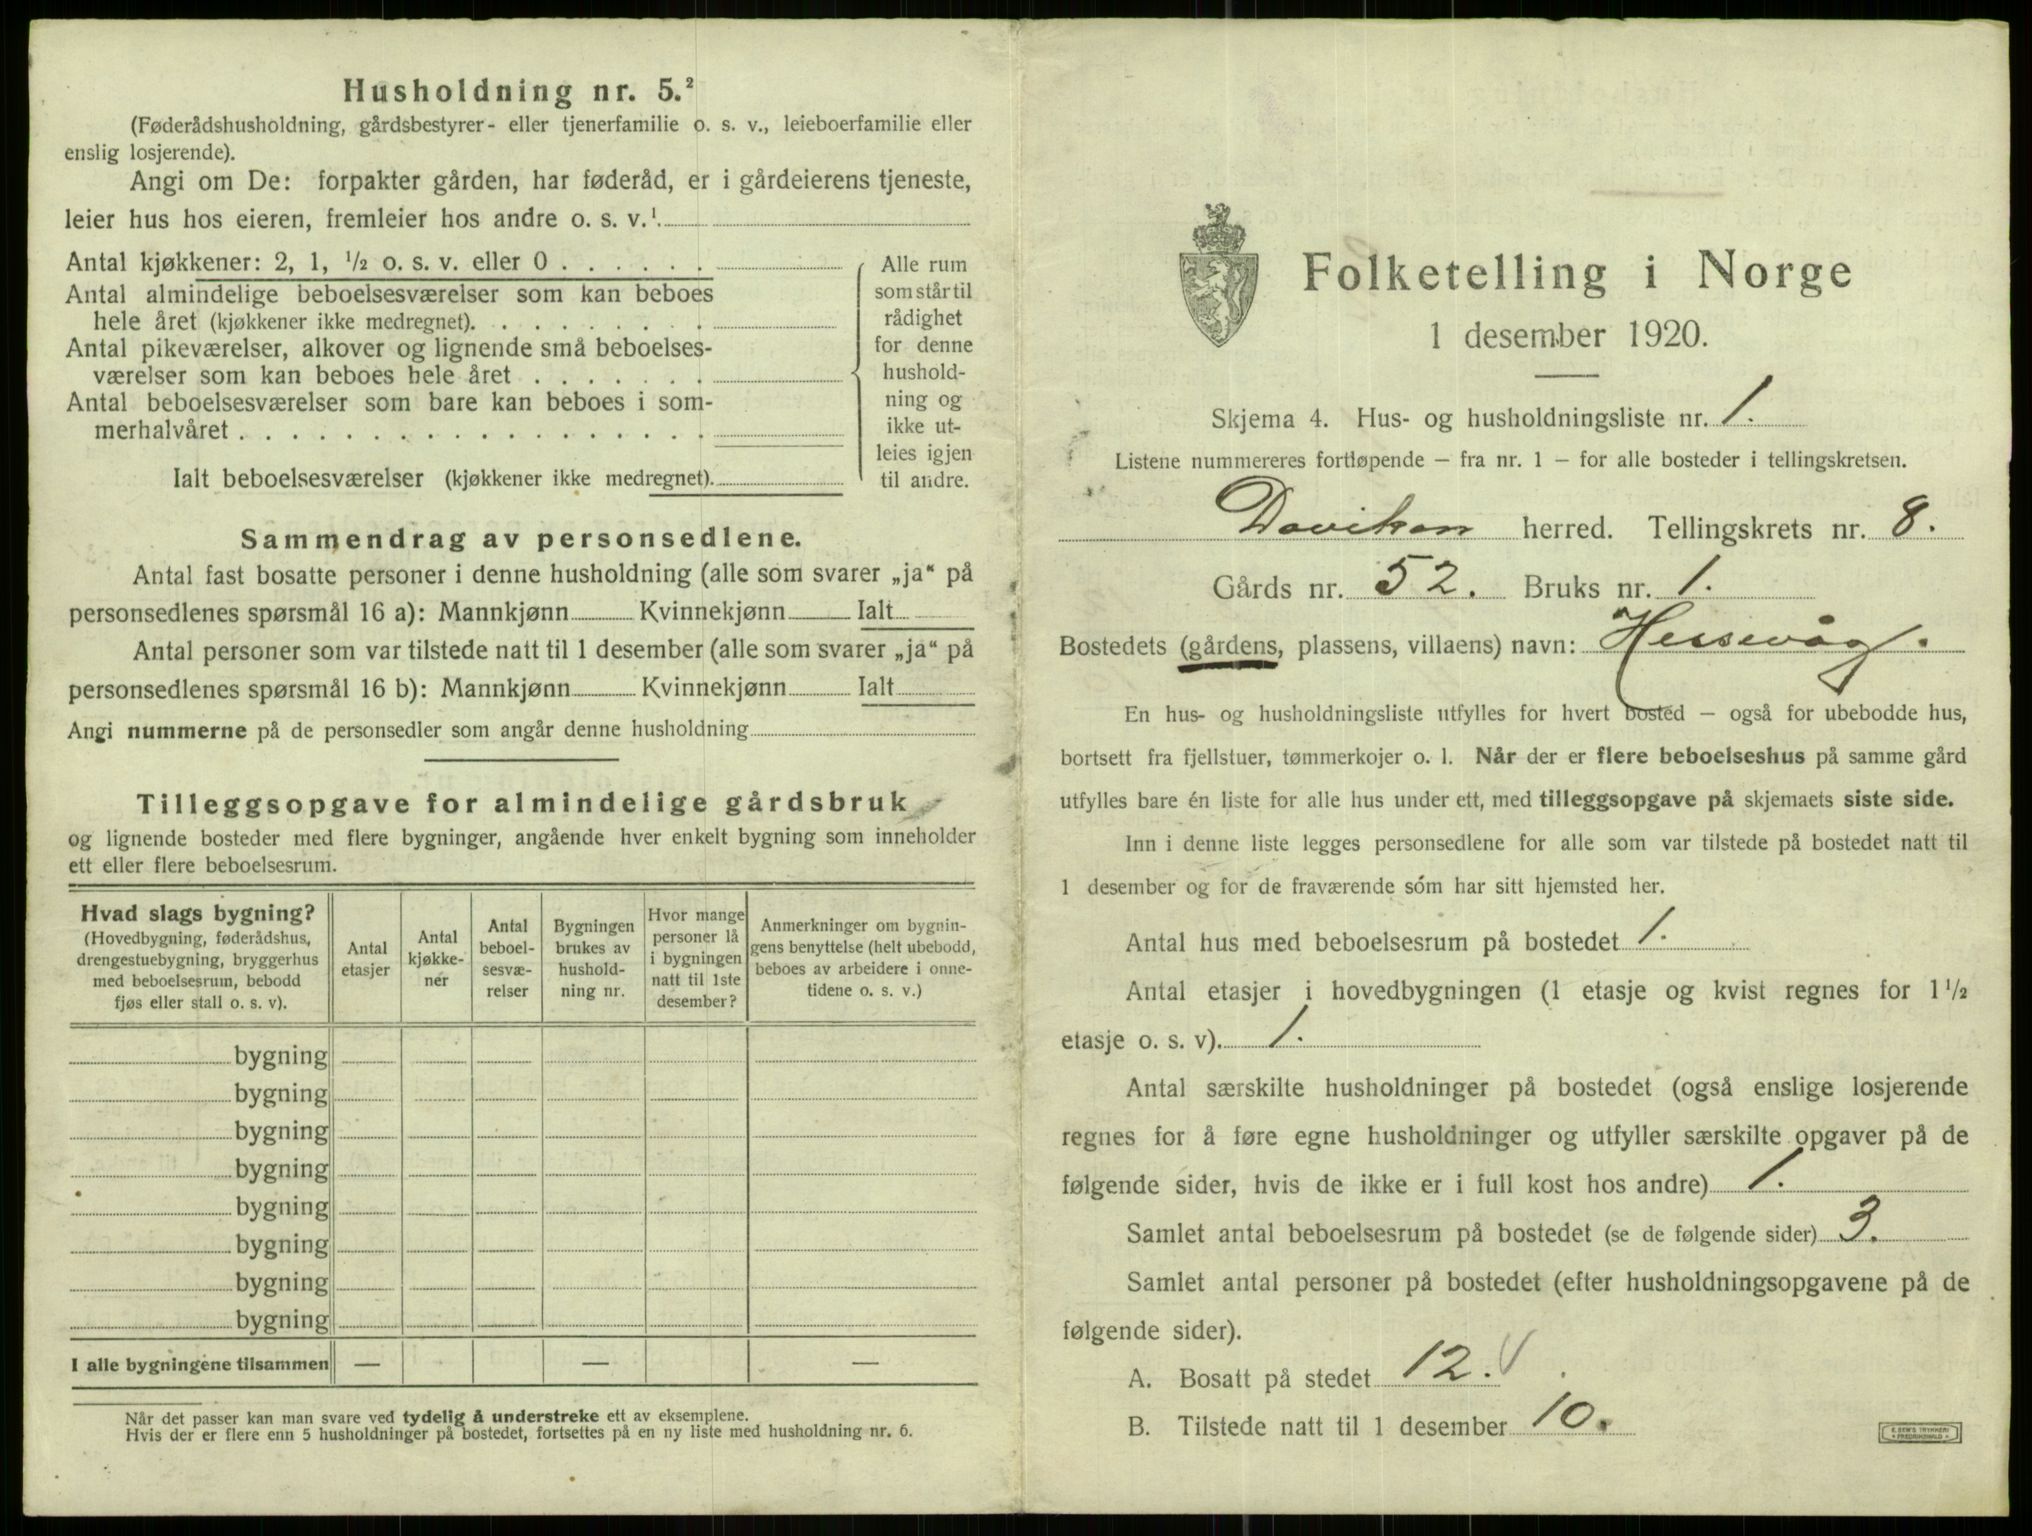 Husholdning nr. 5.²
(Føderådshusholdning, gårdsbestyrer- eller tjenerfamilie o. s. v., leieboerfamilie eller
enslig losjerende).
Angi om De: forpakter gården, har føderåd, er i gårdeierens tjeneste,
leier hus hos eieren, fremleier hos andre o. s. v.¹
Antal kjøkkener: 2, 1, ½ o. s. v. eller 0 . . . . . .
Antal almindelige beboelsesværelser som kan beboes
hele året (kjøkkener ikke medregnet). . . . . . . . .
Antal pikeværelser, alkover og lignende små beboelses-
værelser som kan beboes hele året . . . . . . .
Antal beboelsesværelser som bare kan beboes i som-
merhalvåret . . . . . . . . . . . . . . . . . .
Ialt beboelsesværelser (kjøkkener ikke medregnet).
Alle rum
som står til
rådighet
for denne
hushold-
ning og
ikke ut-
leies igjen
til andre.
Sammendrag av personsedlene.
Antal fast bosatte personer i denne husholdning (alle som svarer „ja“ på
personsedlenes spørsmål 16 a): Mannkjønn Kvinnekjønn Ialt
Antal personer som var tilstede natt til 1 desember (alle som svarer „ja“ på
personsedlenes spørsmål 16 b): Mannkjønn Kvinnekjønn Ialt
Angi nummerne på de personsedler som angår denne husholdning
Tilleggsopgave for almindelige gårdsbruk
og lignende bosteder med flere bygninger, angående hver enkelt bygning som inneholder
ett eller flere beboelsesrum.
Hvad slags bygning?
(Hovedbygning, føderådshus,
drengestuebygning, bryggerhus
med beboelsesrum, bebodd
fjøs eller stall o. s. v).
Antal
etasjer
Antal
kjøkke-
ner
Antal
beboel-
sesvæ-
relser
Bygningen
brukes av
hushold-
ning nr.
Hvor mange
personer lå
i bygningen
natt til 1ste
desember?
Anmerkninger om bygnin-
gens benyttelse (helt ubebodd,
beboes av arbeidere i onne-
tidene o. s. v.)
bygning
bygning
bygning
bygning
bygning
bygning
bygning
bygning
I alle bygningene tilsammen — — —
Når det passer kan man svare ved tydelig å understreke ett av eksemplene.
Hvis der er flere enn 5 husholdninger på bostedet, fortsettes på en ny liste med husholdning nr. 6.
Folketelling i Norge
1 desember 1920.
Skjema 4. Hus- og husholdningsliste nr. 1.
Listene nummereres fortløpende – fra nr. 1 – for alle bosteder i tellingskretsen.
Daviken herred. Tellingskrets nr. 8.
Gårds nr. 52. Bruks nr. 1.
Bostedets (gårdens, plassens, villaens) navn: Hessevåg.
En hus- og husholdningsliste utfylles for hvert bosted – også for ubebodde hus,
bortsett fra fjellstuer, tømmerkojer o. l. Når der er flere beboelseshus på samme gård
utfylles bare én liste for alle hus under ett, med tilleggsopgave på skjemaets siste side.
Inn i denne liste legges personsedlene for alle som var tilstede på bostedet natt til
1 desember og for de fraværende som har sitt hjemsted her.
Antal hus med beboelsesrum på bostedet 1.
Antal etasjer i hovedbygningen (1 etasje og kvist regnes for 1½
etasje o. s. v). 1.
Antal særskilte husholdninger på bostedet (også enslige losjerende
regnes for å føre egne husholdninger og utfyller særskilte opgaver på de
følgende sider, hvis de ikke er i full kost hos andre) 1.
Samlet antal beboelsesrum på bostedet (se de følgende sider) 3.
Samlet antal personer på bostedet (efter husholdningsopgavene på de
følgende sider).
A. Bosatt på stedet 12. √
B. Tilstede natt til 1 desember 10.
E. SEM'S TRYKKERI
FREDRIKSHALD